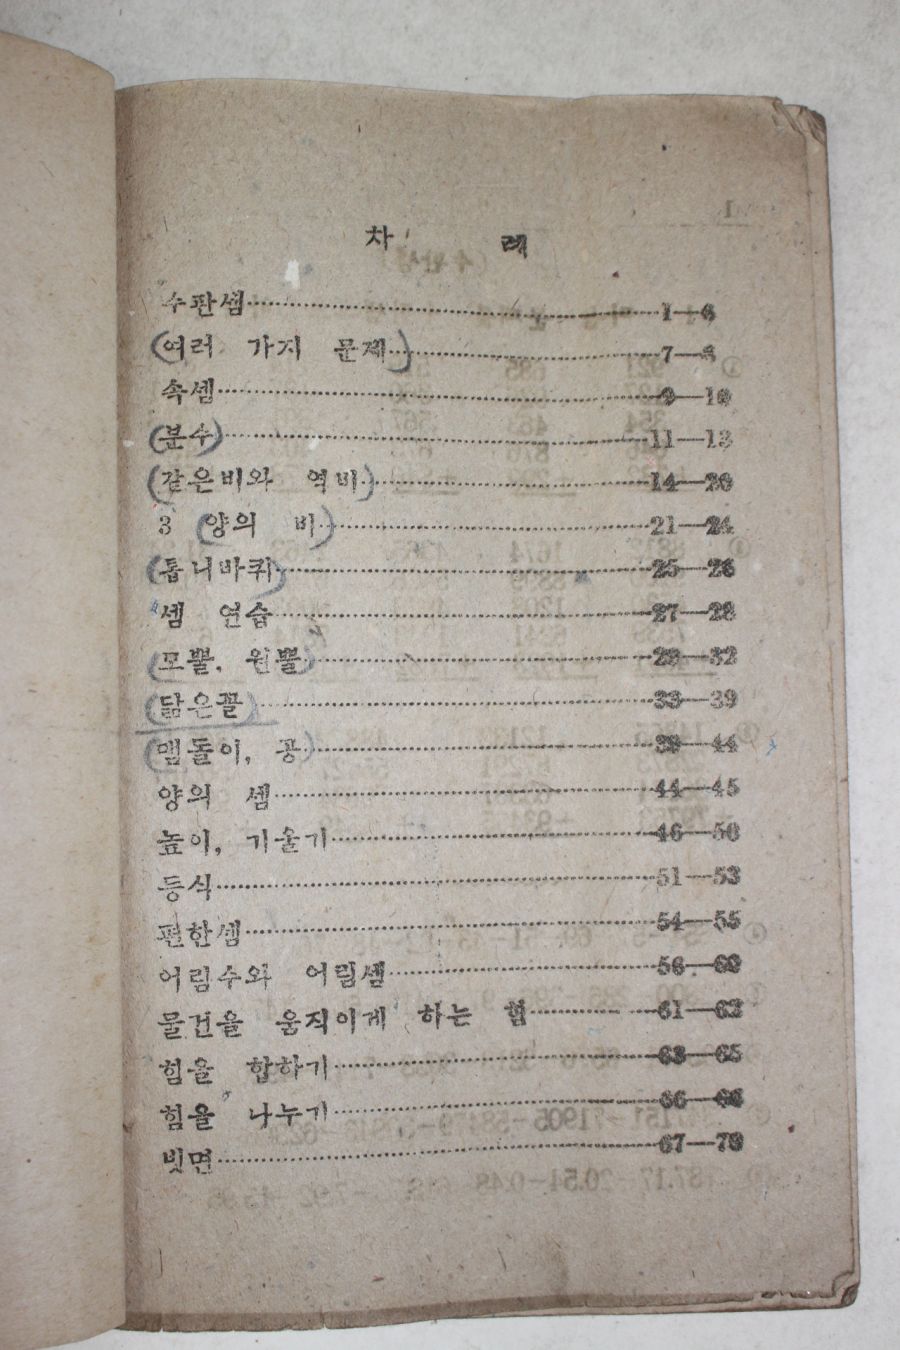 차 례
수판셈……1—6
(여러 가지 문제)……7—8
속셈……9—10
(분수)……11—13
(같은비와 역비)……14—20
3 (양의 비)……21—24
(톱니바퀴)……25—26
셈 연습……27—28
(모뿔, 원뿔)……29—32
(닮은꼴)……33—39
(맴돌이, 공)……39—44
양의 셈……44—45
높이, 기울기……46—50
등식……51—53
편한셈……54—55
어림수와 어림셈……56—60
물건을 움직이게 하는 힘……61—62
힘을 합하기……63—65
힘을 나누기……66—66
빗면……67—70